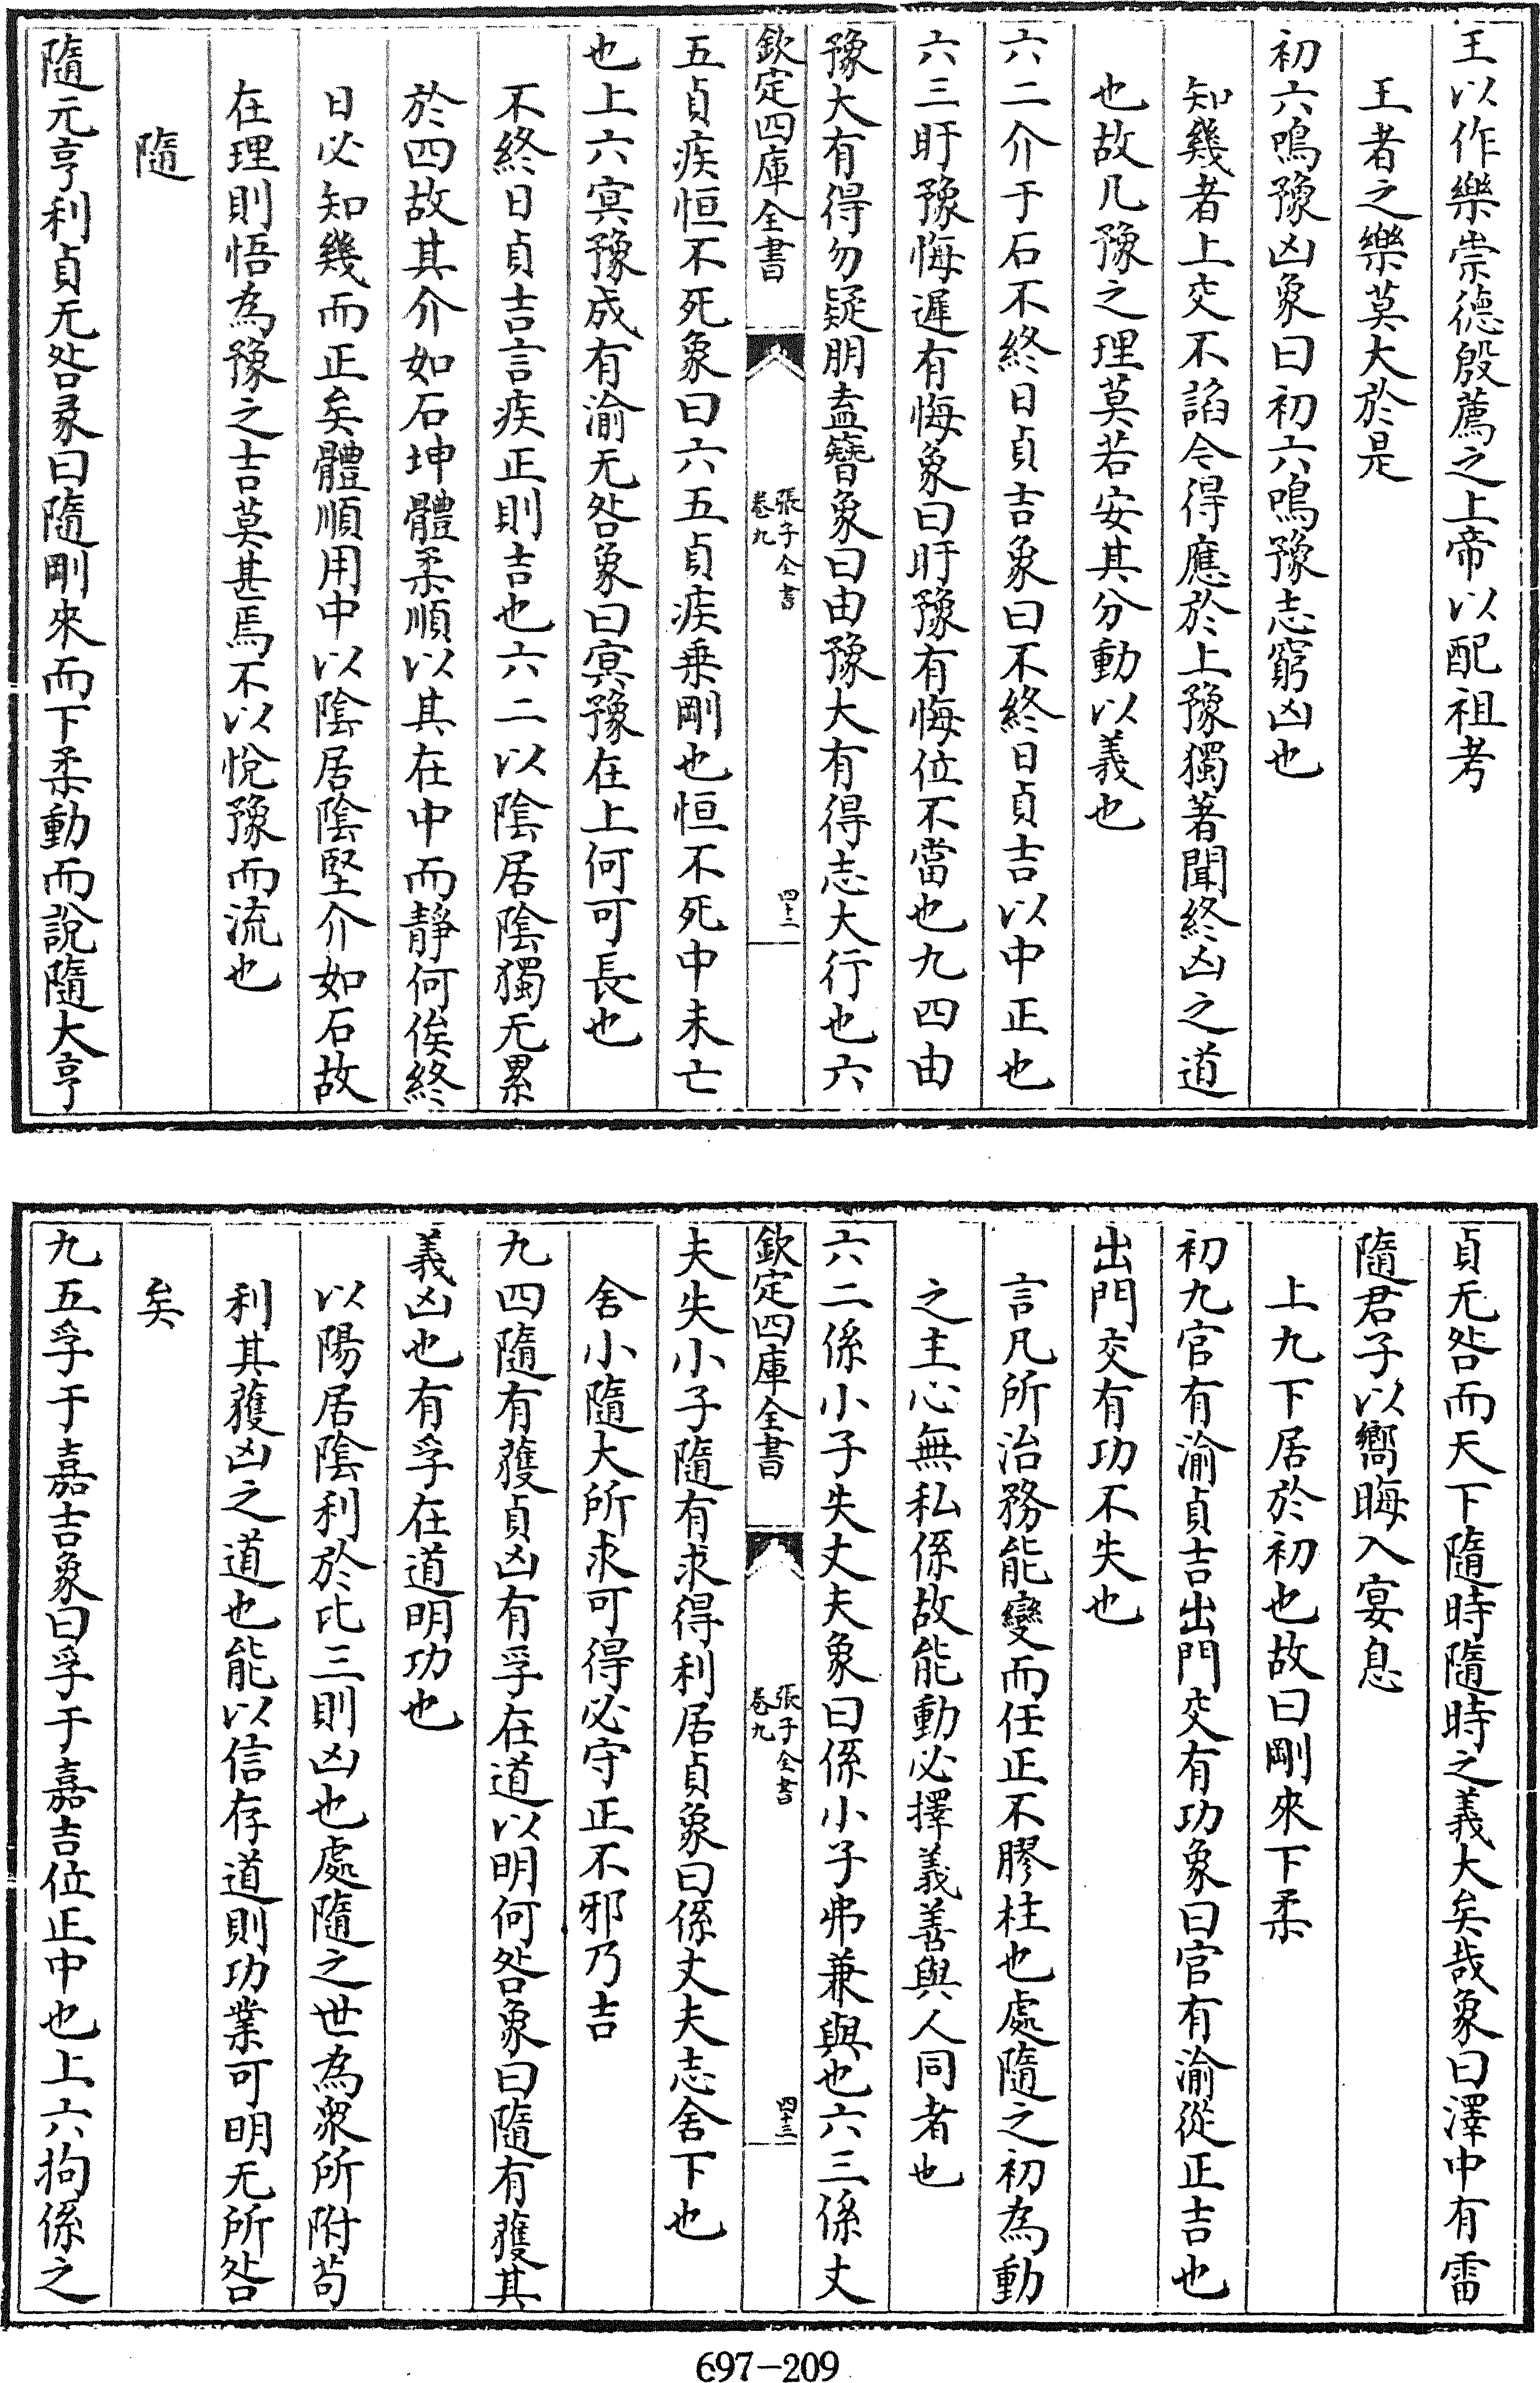 王以作樂崇德殷薦之上帝以配祖考
王者之樂莫大於是
初六鳴豫凶象曰初六鳴豫志窮凶也
知幾者上交不諂今得應於上豫獨著聞終凶之道
也故凡豫之理莫若安其分動以義也
六二介于石不終日貞吉象曰不終日貞吉以中正也
六三盱豫悔遲有悔象曰盱豫有悔位不當也九四由
豫大有得勿疑朋盍簪象曰由豫大有得志大行也六
欽定四庫全書
張子全書
卷九
四十二
五貞疾恒不死象曰六五貞疾乗剛也恒不死中未亡
也上六冥豫成有渝无咎象曰冥豫在上何可長也
不終日貞吉言疾正則吉也六二以陰居陰獨无累
於四故其介如石坤體柔順以其在中而靜何俟終
日必知幾而正矣體順用中以陰居陰堅介如石故
在理則悟為豫之吉莫甚焉不以悅豫而流也
隨
隨元亨利貞无咎彖曰隨剛來而下柔動而說隨大亨
貞无咎而天下隨時隨時之義大矣哉象曰澤中有雷
隨君子以嚮晦入宴息
上九下居於初也故曰剛來下柔
初九官有渝貞吉出門交有功象曰官有渝從正吉也
出門交有功不失也
言凡所治務能變而任正不膠柱也處隨之初為動
之主心無私係故能動必擇義善與人同者也
六二係小子失丈夫象曰係小子弗兼與也六三係丈
欽定四庫全書
張子全書
卷九
四十三
夫失小子隨有求得利居貞象曰係丈夫志舍下也
舍小隨大所求可得必守正不邪乃吉
九四隨有獲貞凶有孚在道以明何咎象曰隨有獲其
義凶也有孚在道明功也
以陽居陰利於比三則凶也處隨之世為衆所附苟
利其獲凶之道也能以信存道則功業可明无所咎
矣
九五孚于嘉吉象曰孚于嘉吉位正中也上六拘係之
697-209